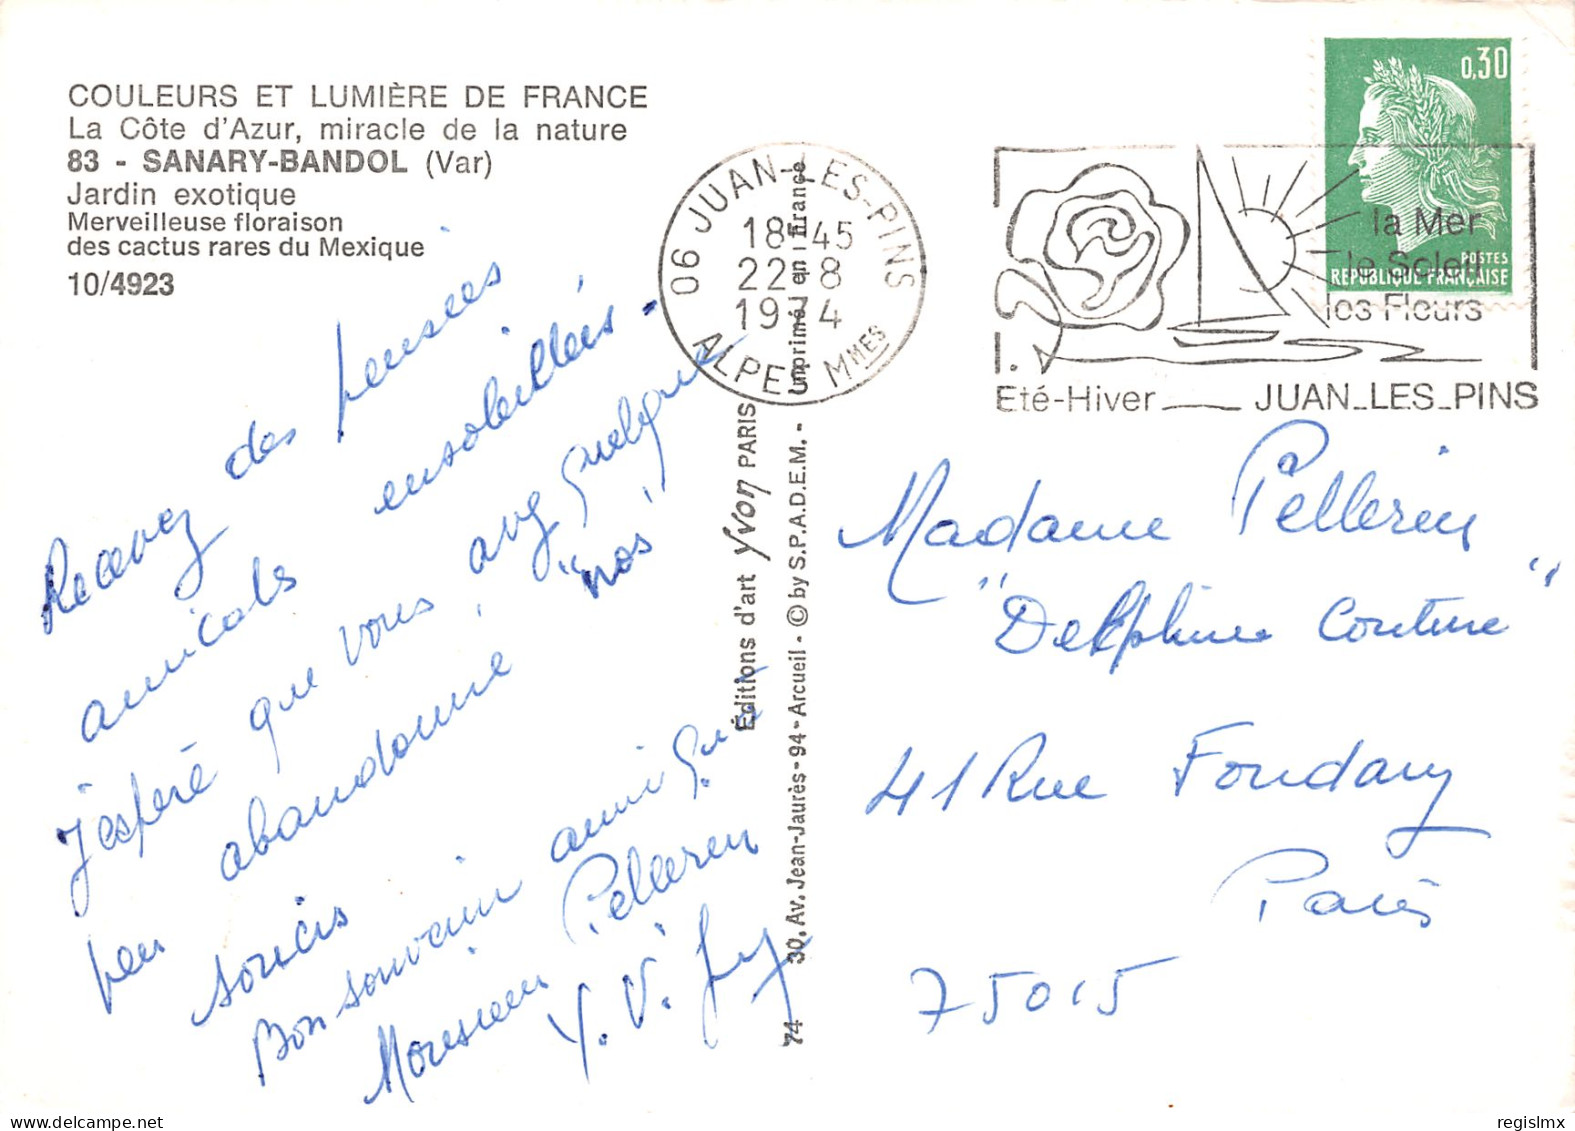 COULEURS ET LUMIÈRE DE FRANCE
La Côte d'Azur, miracle de la nature
83 - SANARY-BANDOL (Var)
Jardin exotique
Merveilleuse floraison
des cactus rares du Mexique
10/4923
Recevez des pensées
amicales ensoleillées -
J'espère que vous avez quelque
peu abandonné "nos"
soucis
Bon souvenir amical à
Monsieur Pellerin
Y. V.
Éditions d'art Yvon PARIS
30, Av. Jean-Jaurès - 94 - Arcueil - © by S.P.A.D.E.M. - Imprimé en France
74
06 JUAN-LES-PINS
18 45
22 8
19 4
ALPES MMES
0,30
POSTES
REPUBLIQUE FRANÇAISE
la Mer
le Soleil
les Fleurs
Eté-Hiver JUAN_LES_PINS
Madame Pellerin
"Delphine Couture"
41 Rue Fondary
Paris
75015
regislmx